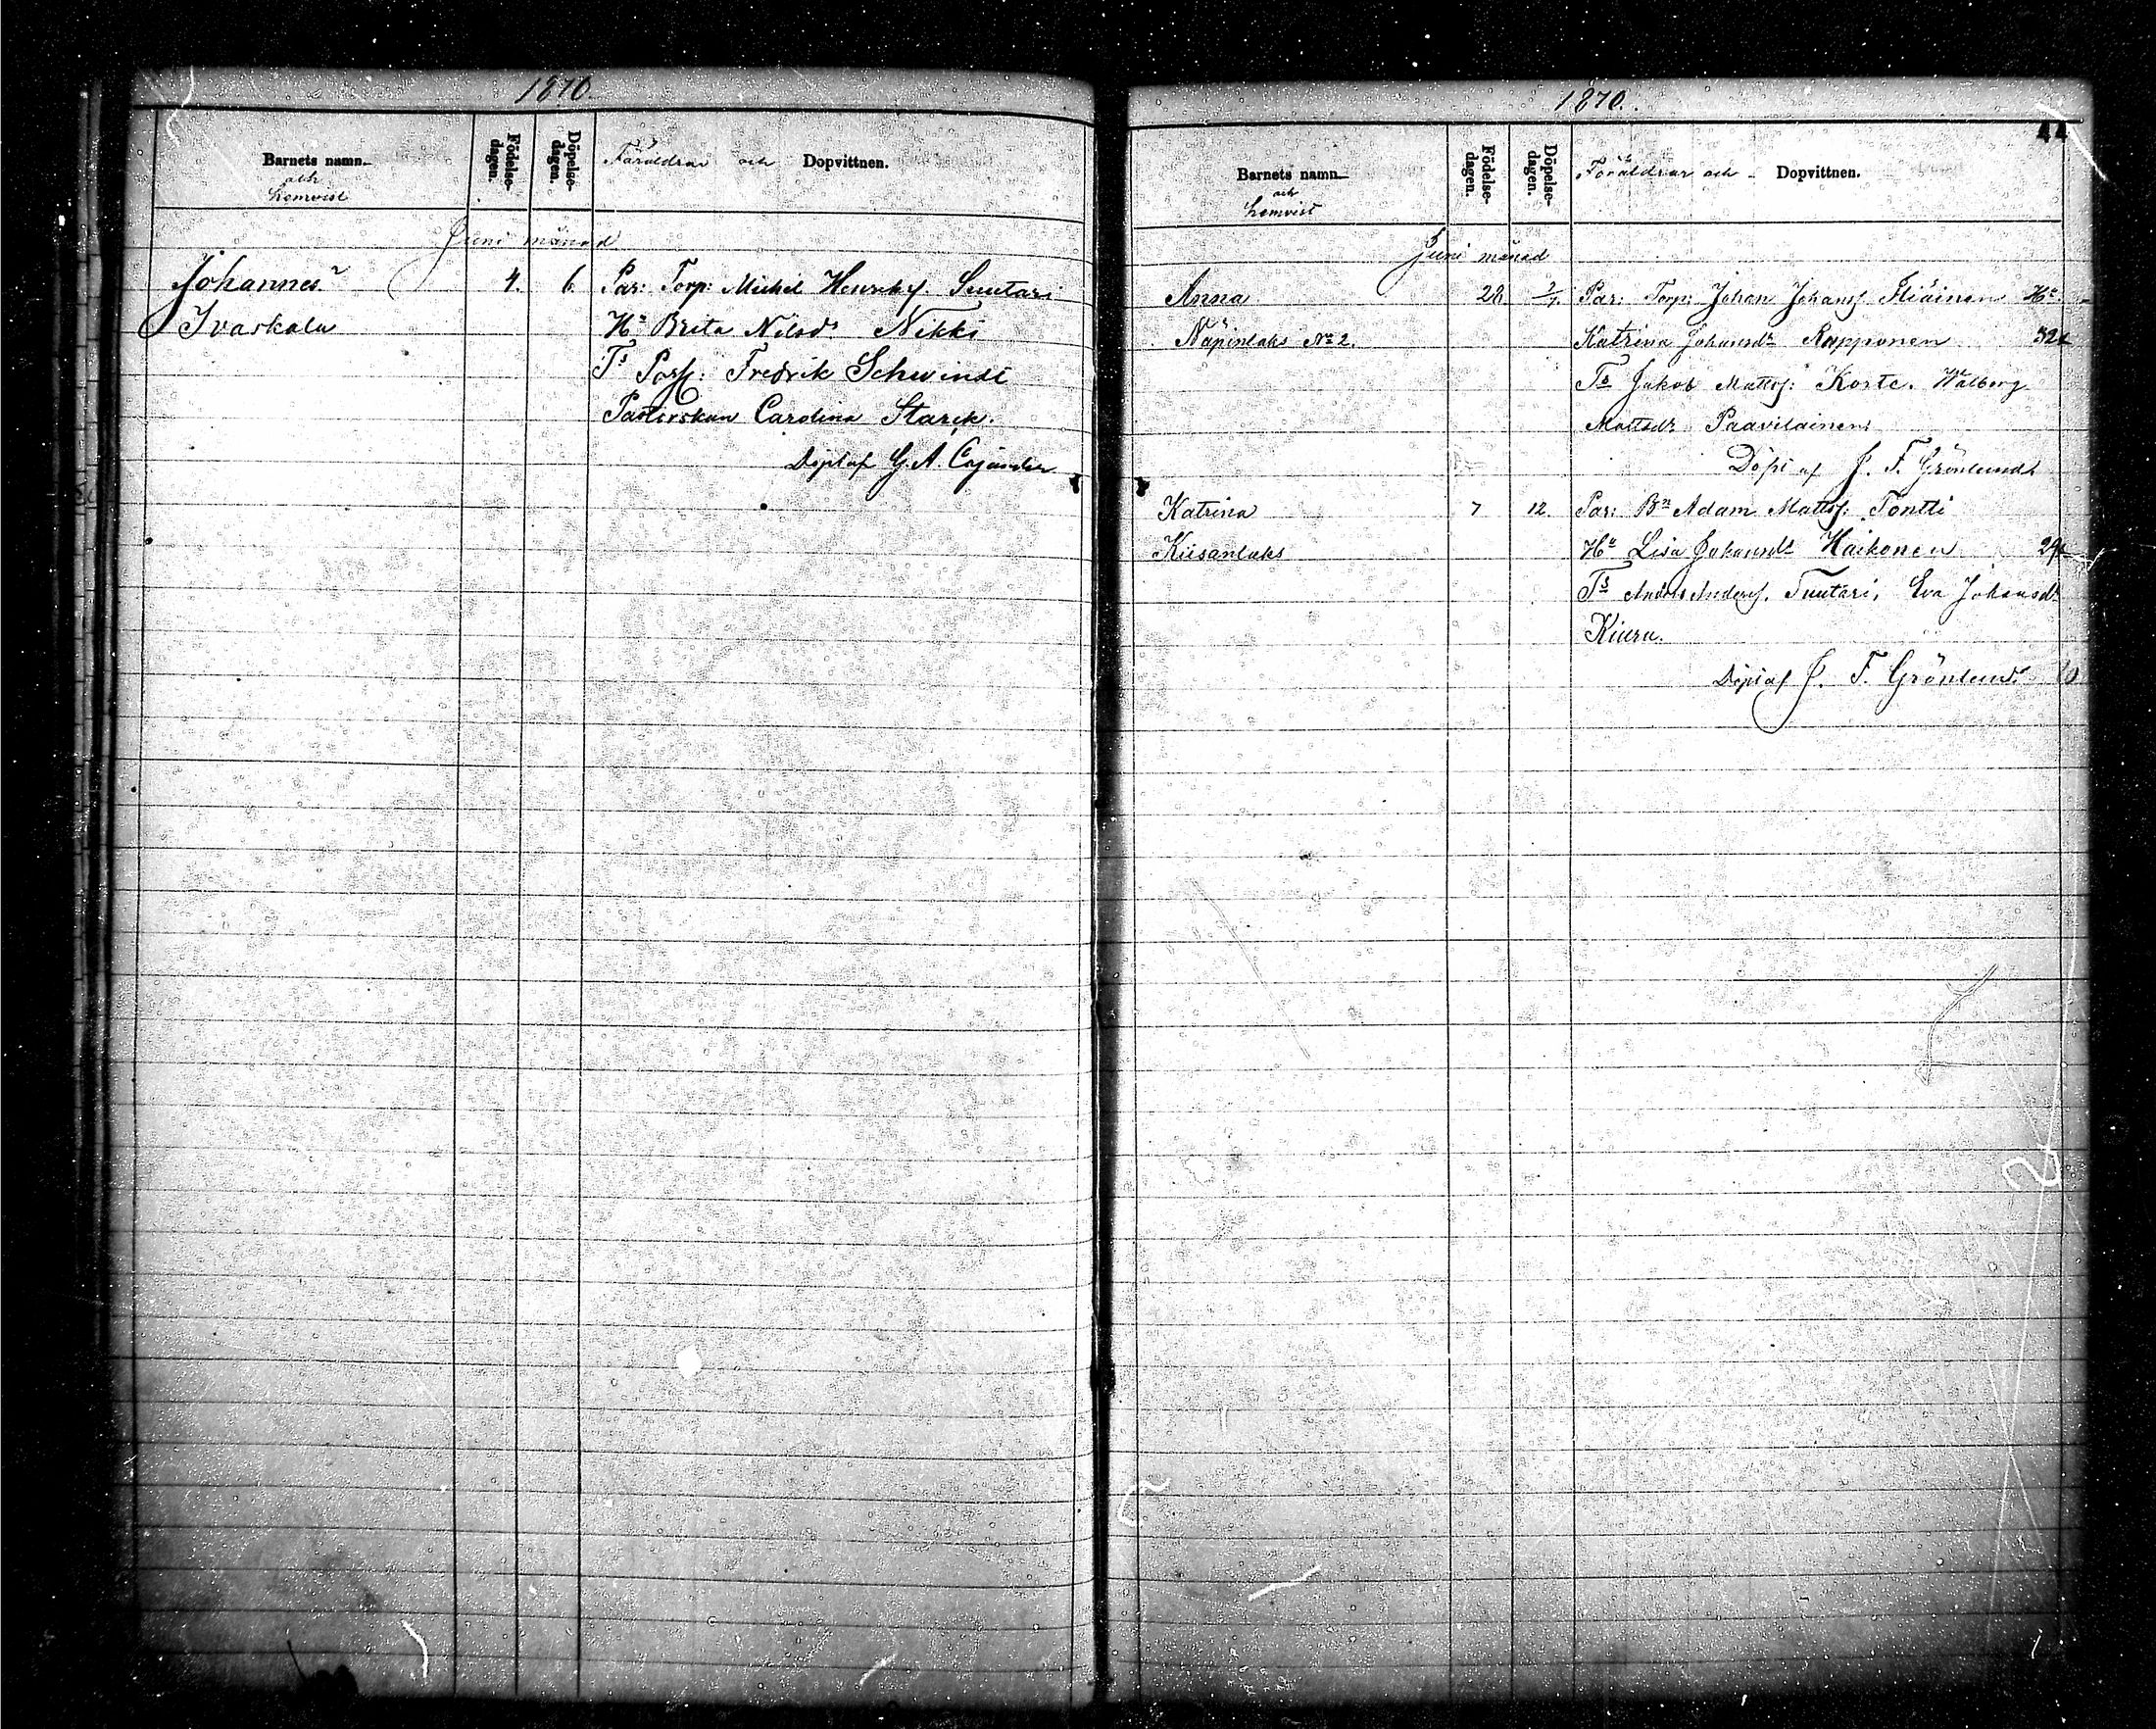 1870.
Barnets namn
och
hemvist
Födelse-
dagen.
Döpelse-
dagen.
Föräldrar och Dopvittnen.
Juni månad
Johannes 4. 6 Par: Torp: Michel Henriksſ. Suutari
Ivaskala Hu Brita Nilsdr Nikki
Ts Fredrik Schvindt
Carolina Starck.
Döpt af G. A. Cajander
1870.
44
Barnets namn
och
hemvist
Födelse-
dagen.
Döpelse-
dagen.
Föräldrar och Dopvittnen.
Juni månad
Anna 28 2/7 Par: Torp: Johan Johansſ. Hu
Näpinlaks No 2. Katrina Johansdr Rapponen 32
Ts Jakob Mattsſ: Korte. Walborg
Mattsdr Paavilainen
Döpt af J. F. Grönlund
Katrina 7 12. Par: Bn Adam Mattsſ: Tontti
Kiisanlaks Hu Lisa Johansdr Haikonen 29
Ts Andersſ. Tuutari, Eva Johansdr
Kiuru.
Döpt af J. F. Grönlund